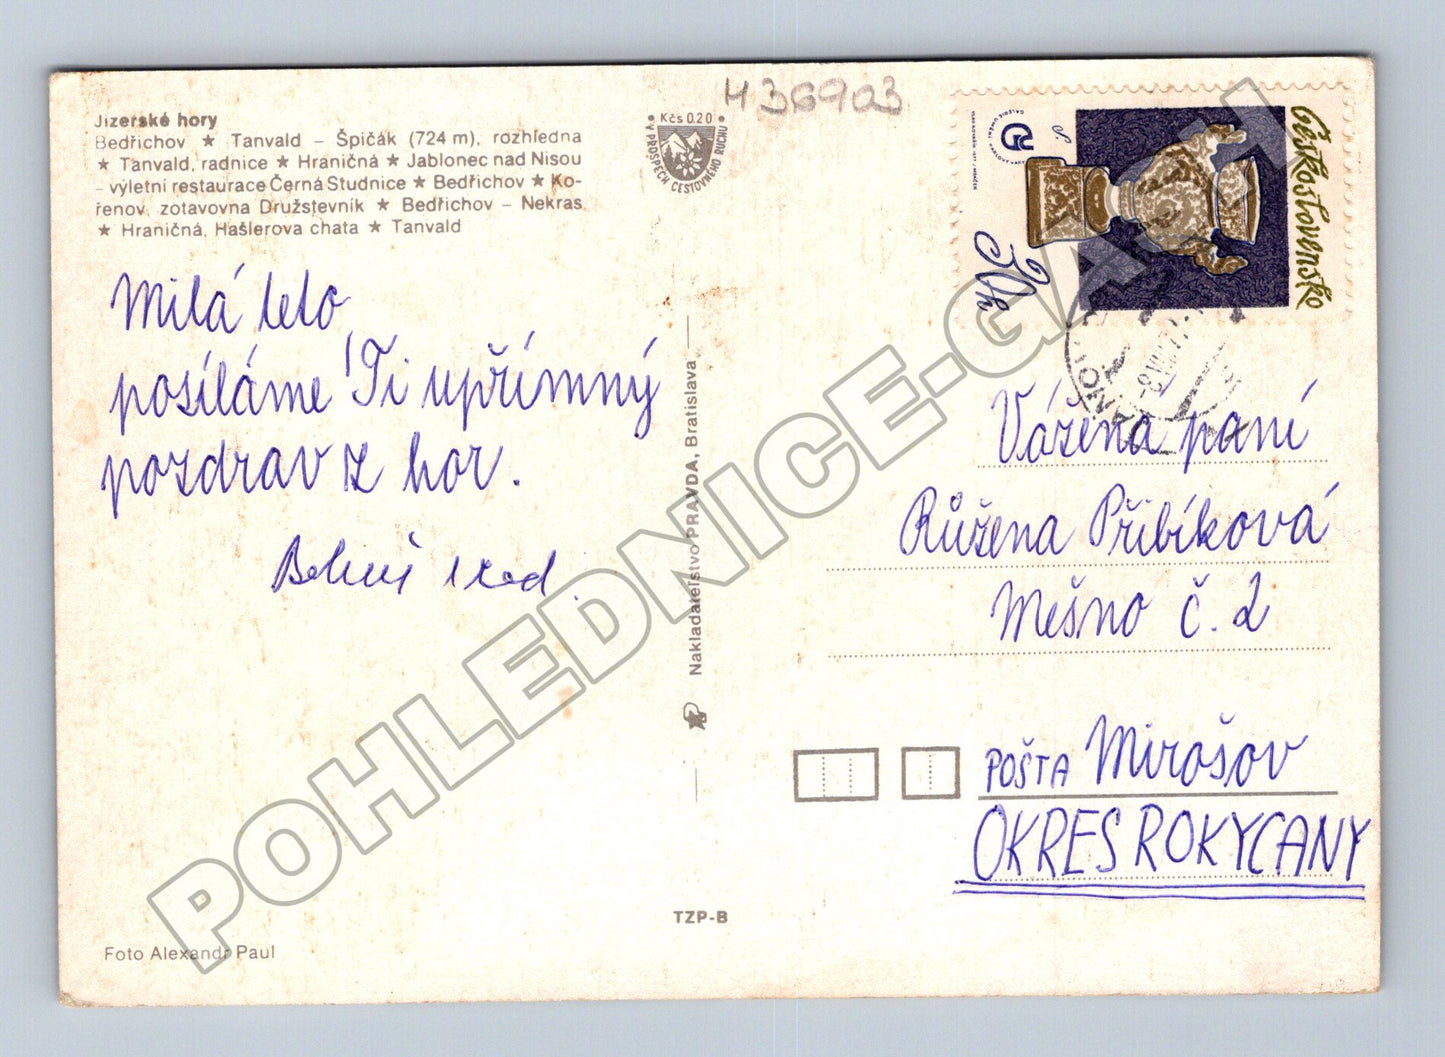 H36903
Jizerské hory
Bedřichov ★ Tanvald – Špičák (724 m), rozhledna
★ Tanvald, radnice ★ Hraničná ★ Jablonec nad Nisou
– výletní restaurace Černá Studnice ★ Bedřichov ★ Ko-
řenov, zotavovna Družstevník ★ Bedřichov – Nekras
★ Hraničná, Hašlerova chata ★ Tanvald
• Kčs 0.20 •
V PROSPĚCH CESTOVNÉHO RUCHU
Československo
30h
Milá teto
posíláme Ti upřímný
pozdrav z hor.
Nakladateľstvo PRAVDA, Bratislava
Vážená paní
Růžena Přibíková
Mešno č. 2
POŠTA Mirošov
OKRES ROKYCANY
TZP-B
Foto Alexandr Paul
POHLEDNICE-GALH